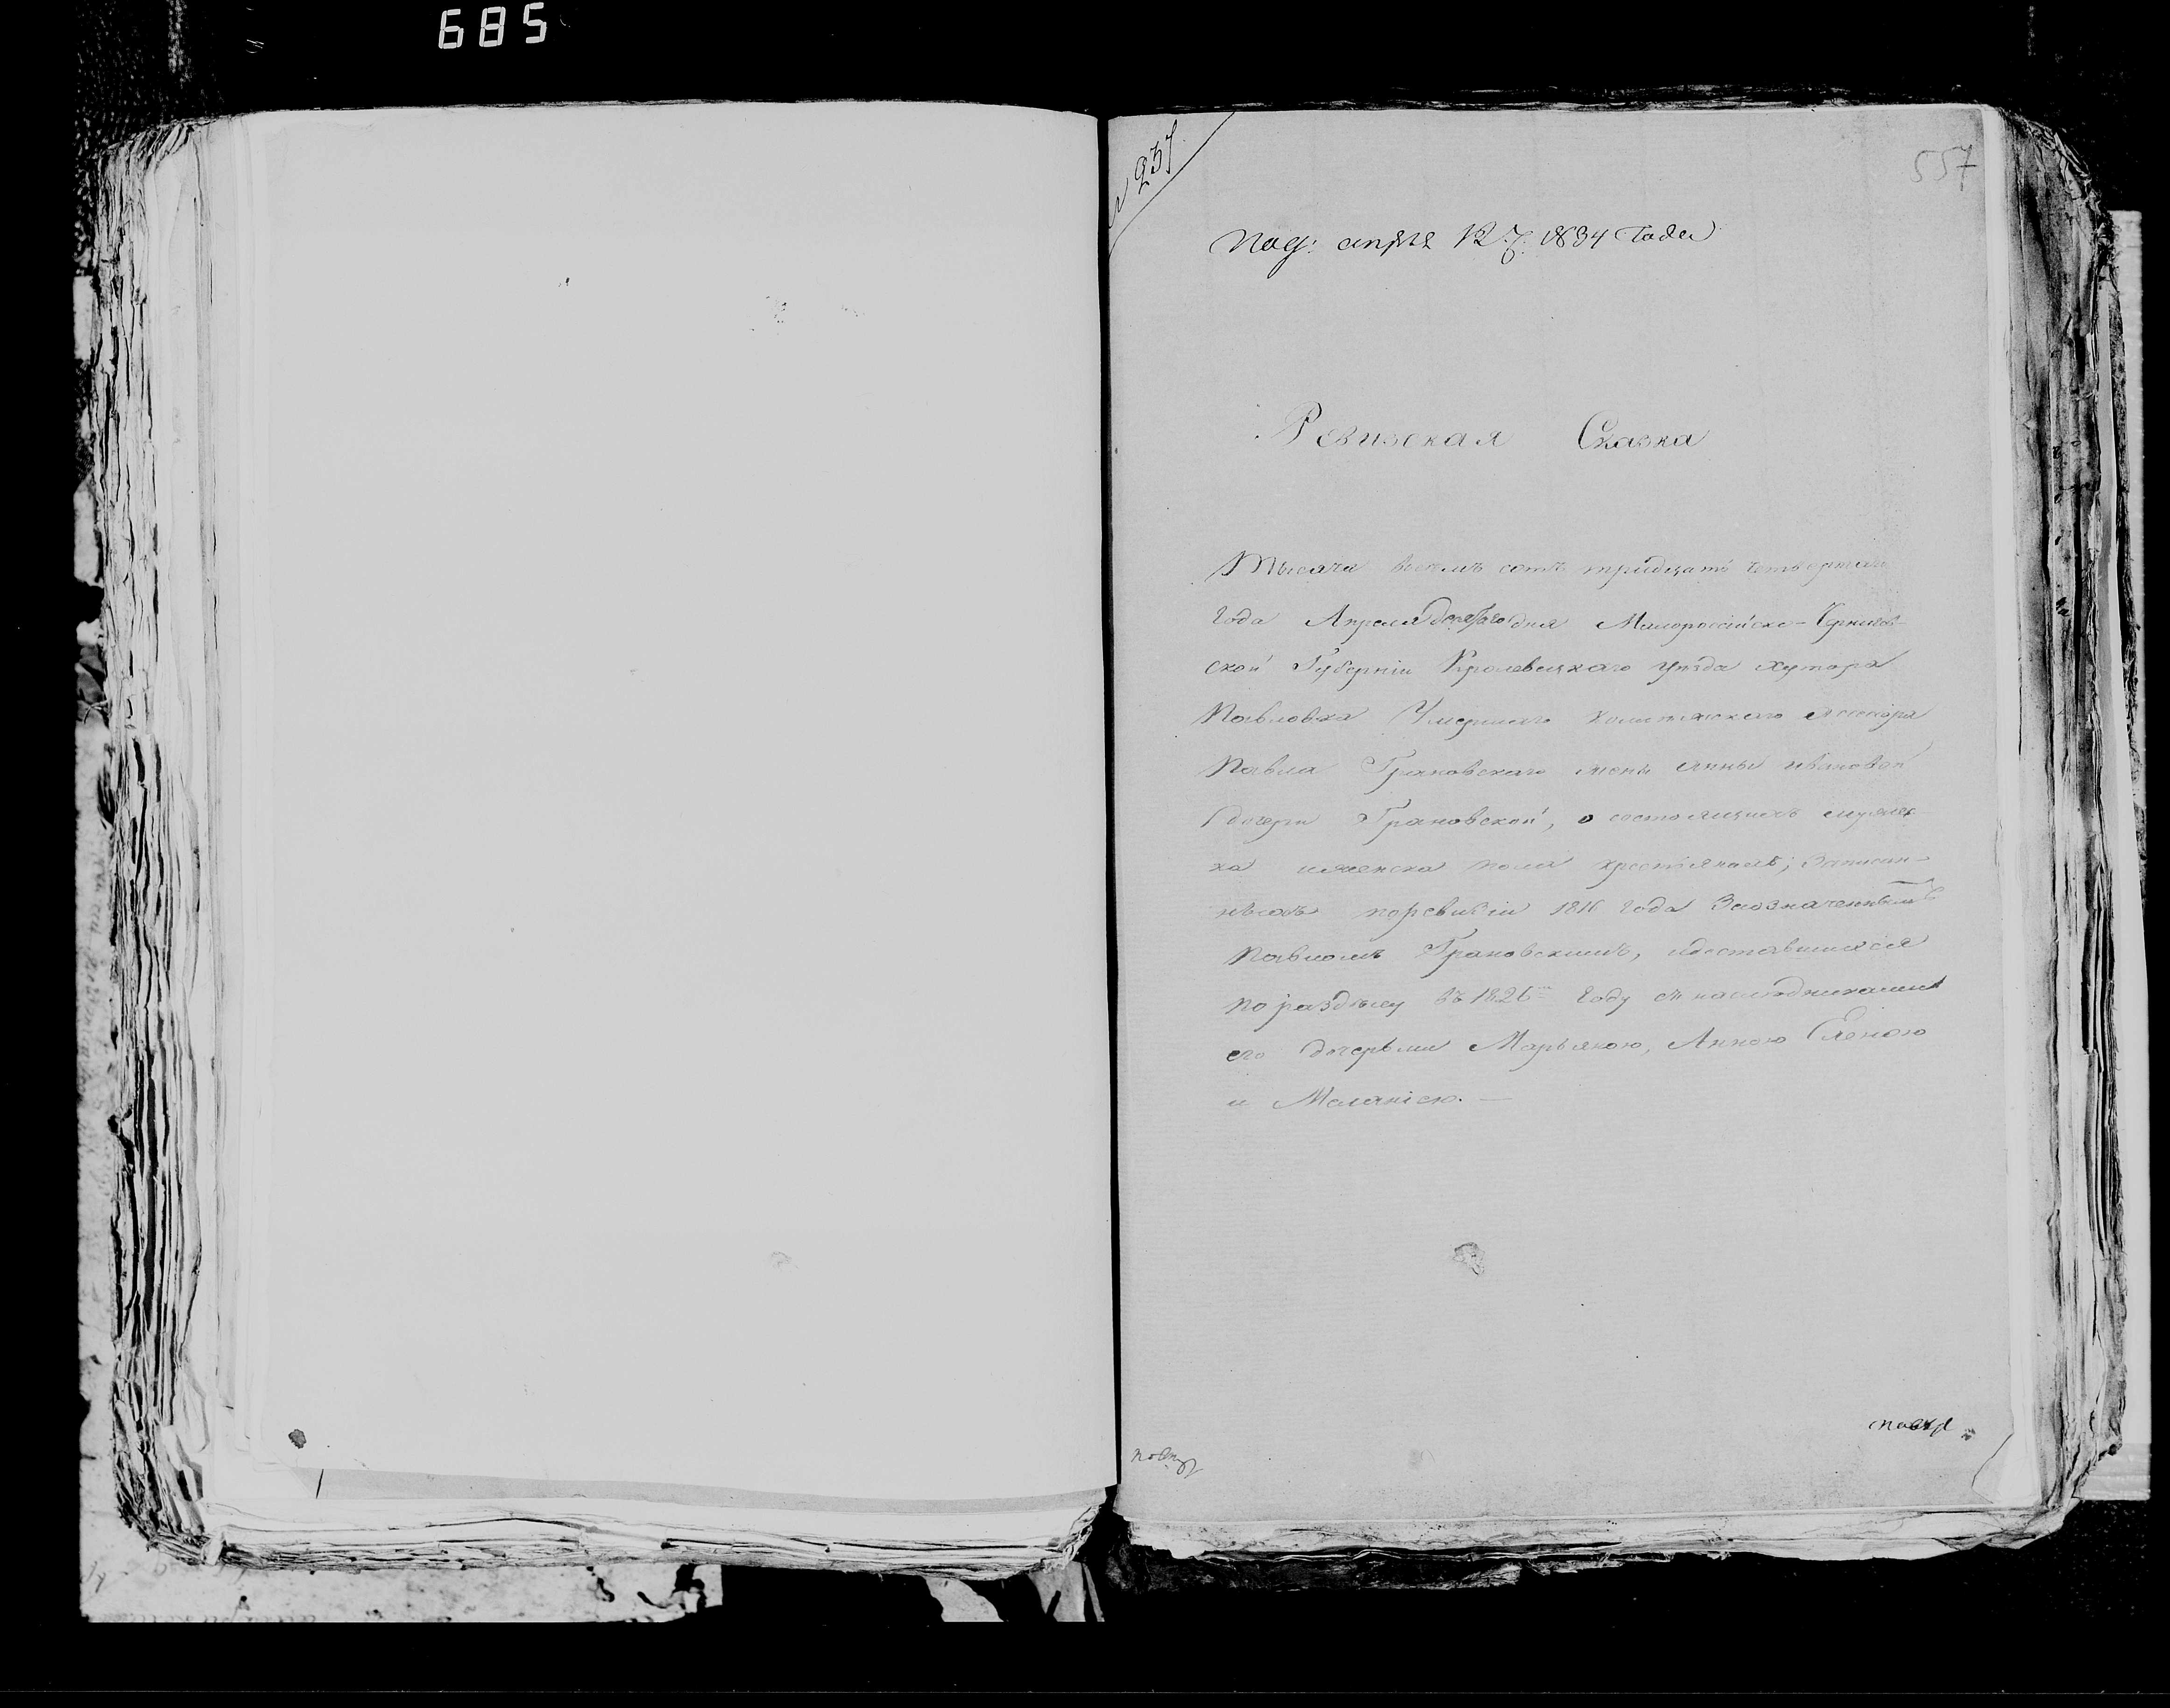 685
№ 237
557
Под: апреля 12 д. 1834 года
Ревизская Сказка
Тысяча восемъ сотъ тридцать четвертаго
года Апреля дня Малороссійско-Чернигов-
ской Губерніи Кролевецкаго уѣзда хутора
Павловка Умершаго Колежскаго Асесора
Павла Грановскаго жены Анны Ивановой
дочери Грановской, о состоящихъ мужес
ка иженска пола крестьянахъ; Записан-
ныхъ поревизіи 1816 года Заозначеннымъ
Павломъ Грановскимъ, идоставшихся
по раздѣлу въ 1826 году съ наследниками
его дочерьми Марьяною, Анною Еленою
и Меланіею. —